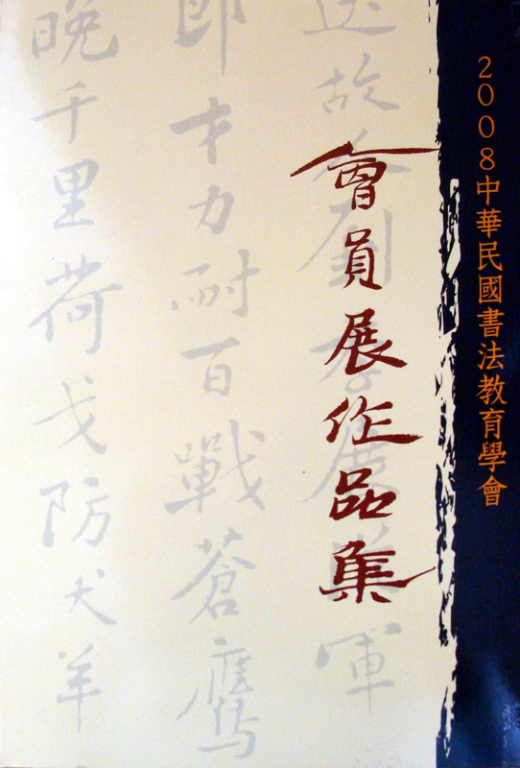 2008中華民國書法教育學會
會員展作品集
即才力耐百戰蒼鷹
晚千里荷戈防犬羊